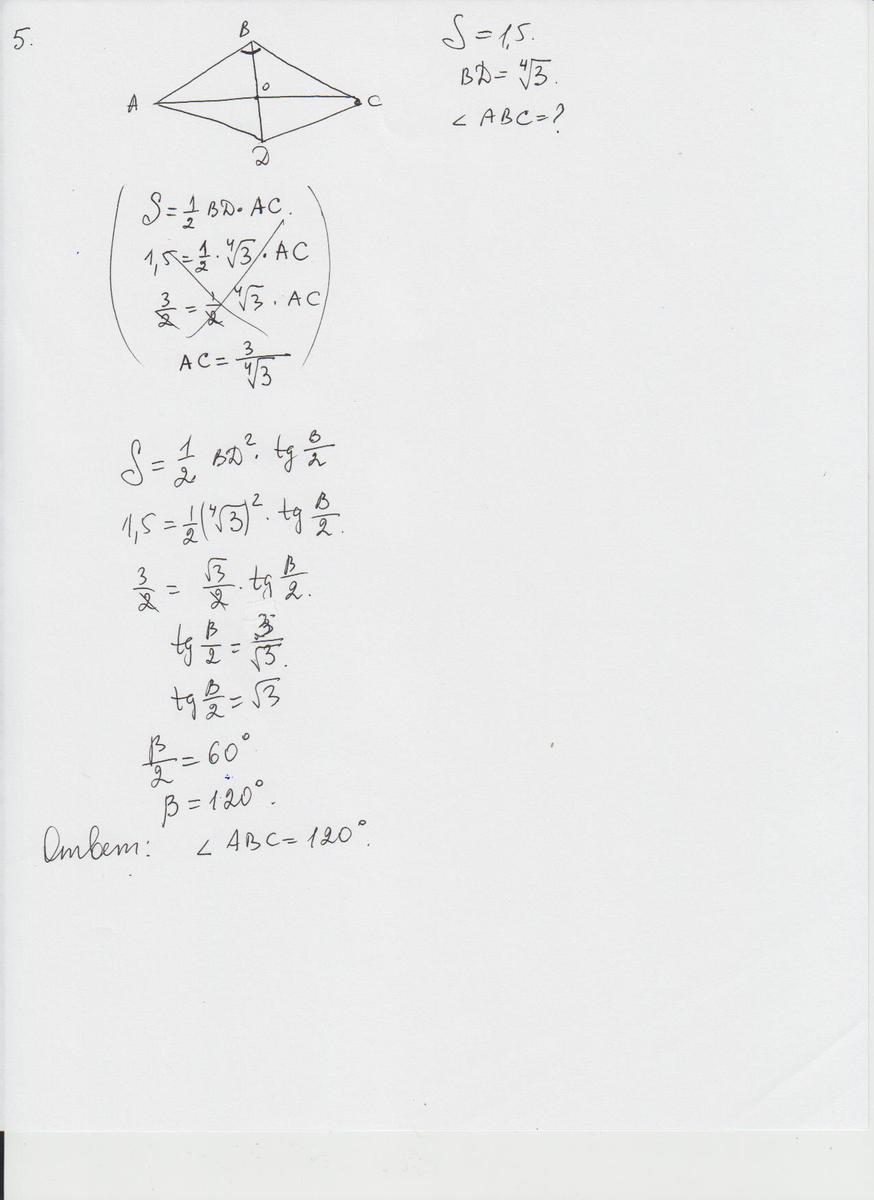 5.
B
A
O
C
D
S = 1,5.
BD = ∜3.
∠ ABC = ?
S = 1/2 BD · AC.
1,5 = 1/2 · ∜3 · AC
3/2 = 1/2 ∜3 · AC
AC = 3/∜3
S = 1/2 BD² · tg B/2
1,5 = 1/2 (∜3)² · tg B/2.
3/2 = √3/2 · tg B/2.
tg B/2 = 3/√3.
tg B/2 = √3
B/2 = 60°
B = 120°.
Ответ: ∠ ABC = 120°.